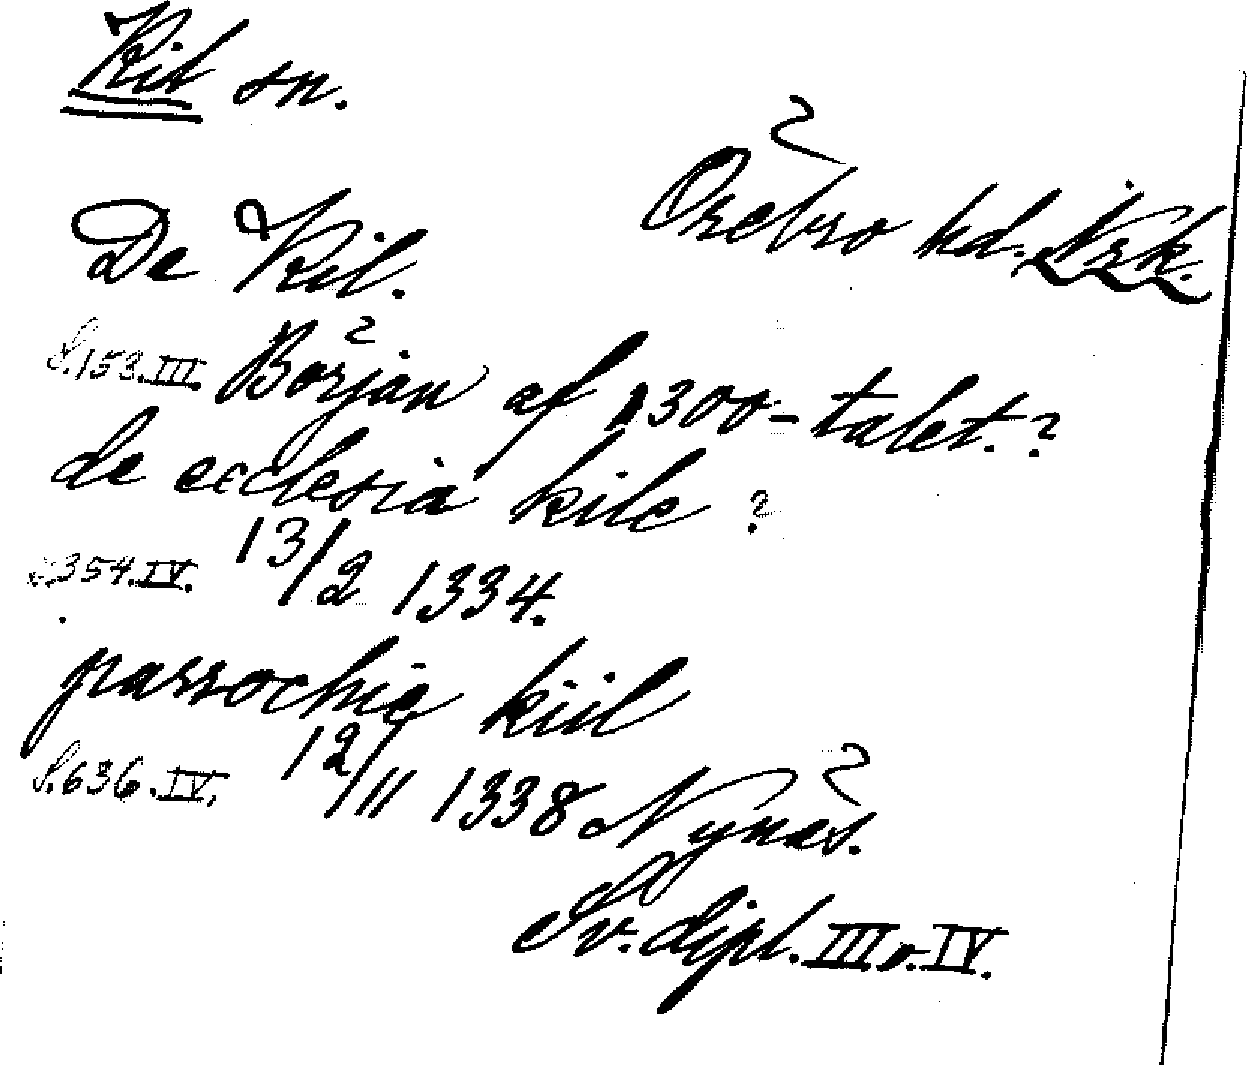 Kil sn.
Örebro hd. Nrk.
De Kil.
S. 153. III. Början af 1300-talet. ?
de ecclesia kile ?
S. 354. IV. 13/2 1334.
parrochie kiil
S. 636. IV. 12/11 1338 Nynäs.
Sv. dipl. III o. IV.